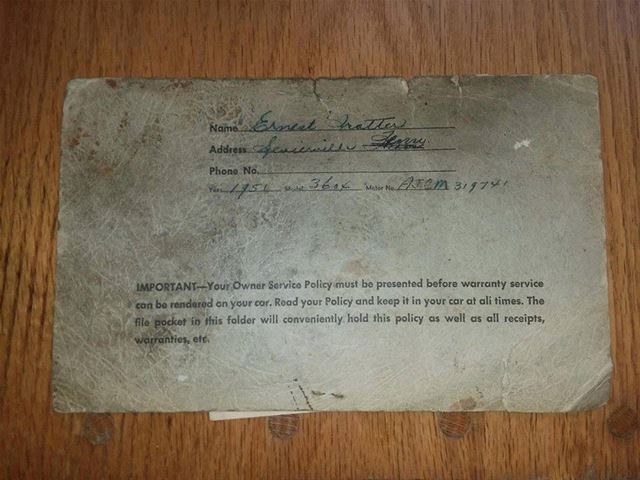 Name Ernest Trotter
Address Sevierville
Phone No.
Year 1951 Model 3604 Motor No. AJCM 319741
IMPORTANT—Your Owner Service Policy must be presented before warranty service
can be rendered on your car. Read your Policy and keep it in your car at all times. The
file pocket in this folder will conveniently hold this policy as well as all receipts,
warranties, etc.